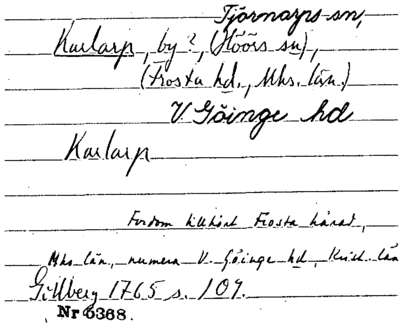 Tjörnarps sn,
Karlarp, by?, (Höörs sn),
(Frosta hd., Mhs. län.)
V. Göinge hd
Karlarp
Fordom tillhört Frosta härad,
Mhs län, numera V. Göinge hd, Krist. län
Gillberg 1765 s. 109.
Nr 6368.